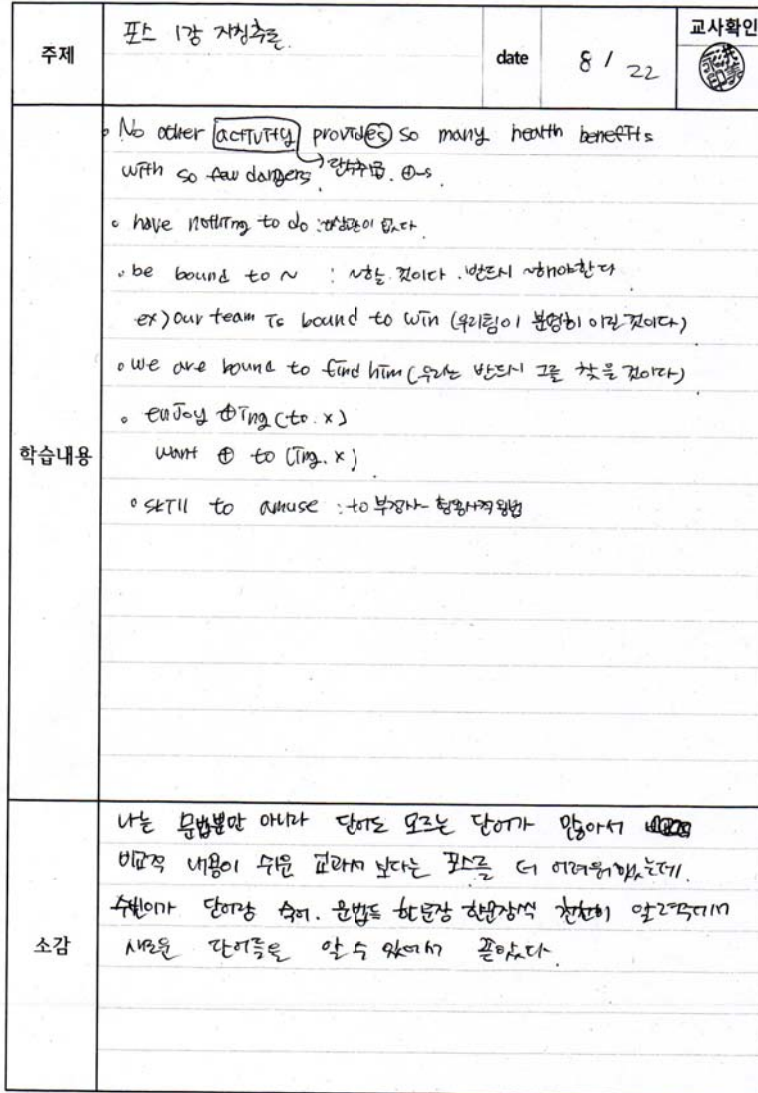 주제
포스 1강 지칭추론
date
8 / 22
교사확인
학습내용
• No other activity provides so many health benefits
with so few dangers. → 단수취급. ⊕-s
• have nothing to do : 상관이 없다
• be bound to ~ : ~할 것이다. 반드시 ~해야한다
ex) our team is bound to win (우리팀이 분명히 이길 것이다)
• we are bound to find him (우리는 반드시 그를 찾을 것이다)
• enjoy ⊕ing (to. x)
want ⊕ to (ing. x)
• skill to amuse : to부정사- 형용사적용법
소감
나는 문법뿐만 아니라 단어도 모르는 단어가 많아서
비교적 내용이 쉬운 교과서 보다는 포스를 더 어려워했는데.
수빈이가 단어랑 숙어. 문법등 한문장 한문장씩 천천히 알려주어서
새로운 단어들을 알 수 있어서 좋았다.